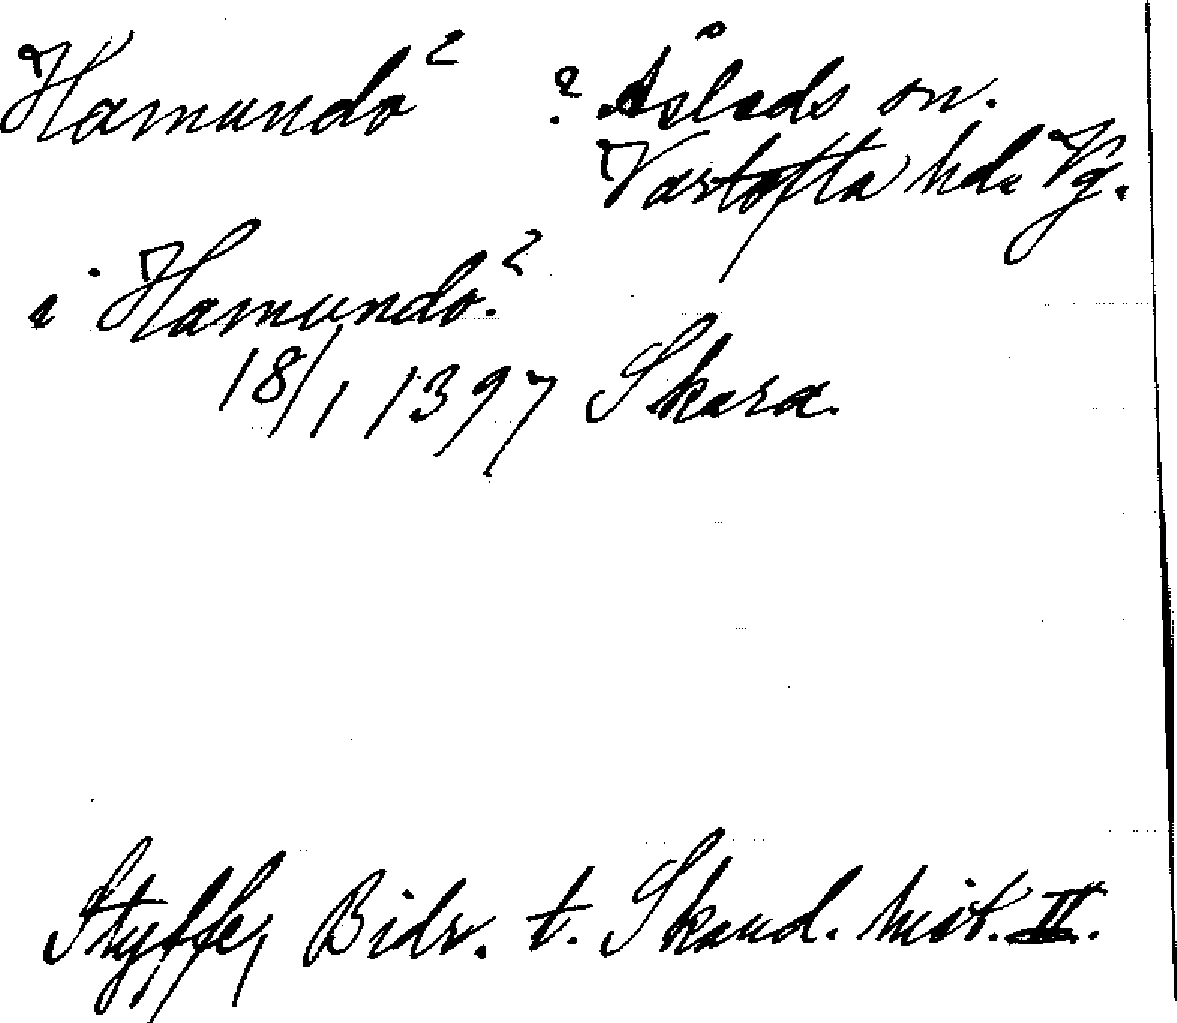 Hamundo² ? Åsleds sn.
Vartofta hd. Vg.
i Hamundo.²
18/1 1397 Skara.
Styffe, Bidr. t. Skand. hist. II.